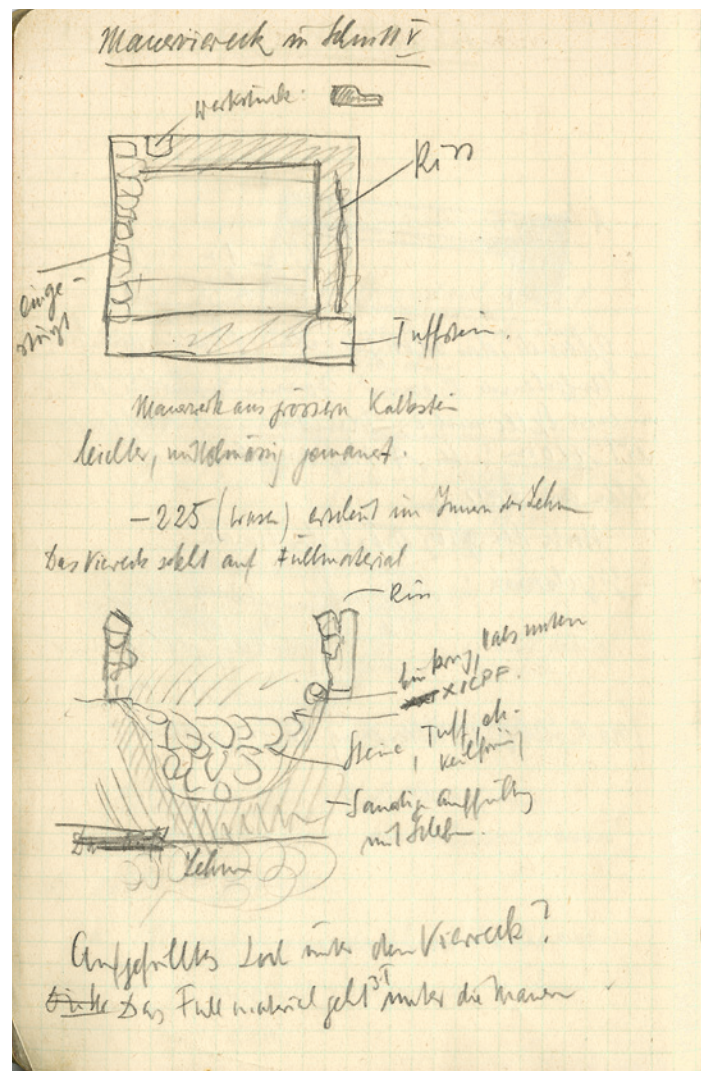 Mauerviereck in Schnitt V
Werkstücke:
Riss
einge-
stürzt
Tuffstein.
Mauerwerk aus grössern Kalkstein
leichter, mittelmässig gemauert.
-225 (Wasen) erscheint im Innern der Lehm
Das Viereck steht auf Füllmaterial
Riss
unten
XICPF.
Steine, Tuff, ch.
keilförmig
Sandige Auffüllung
mit
Lehm
Aufgefülltes Loch unter dem Viereck?
Das Füllmaterial geht z.T. unter die Mauern